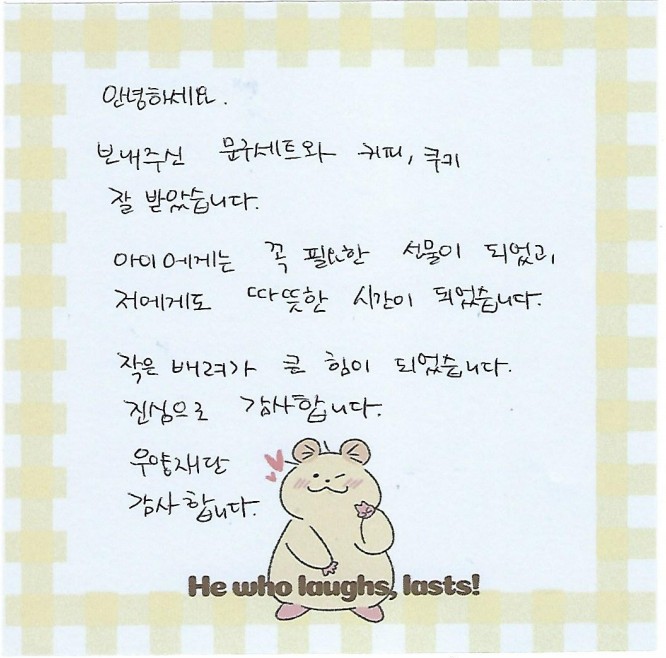 안녕하세요.
보내주신 문구세트와 커피, 쿠키
잘 받았습니다.
아이에게는 꼭 필요한 선물이 되었고,
저에게도 따뜻한 시간이 되었습니다.
작은 배려가 큰 힘이 되었습니다.
진심으로 감사합니다.
우양재단
감사합니다.
He who laughs, lasts!